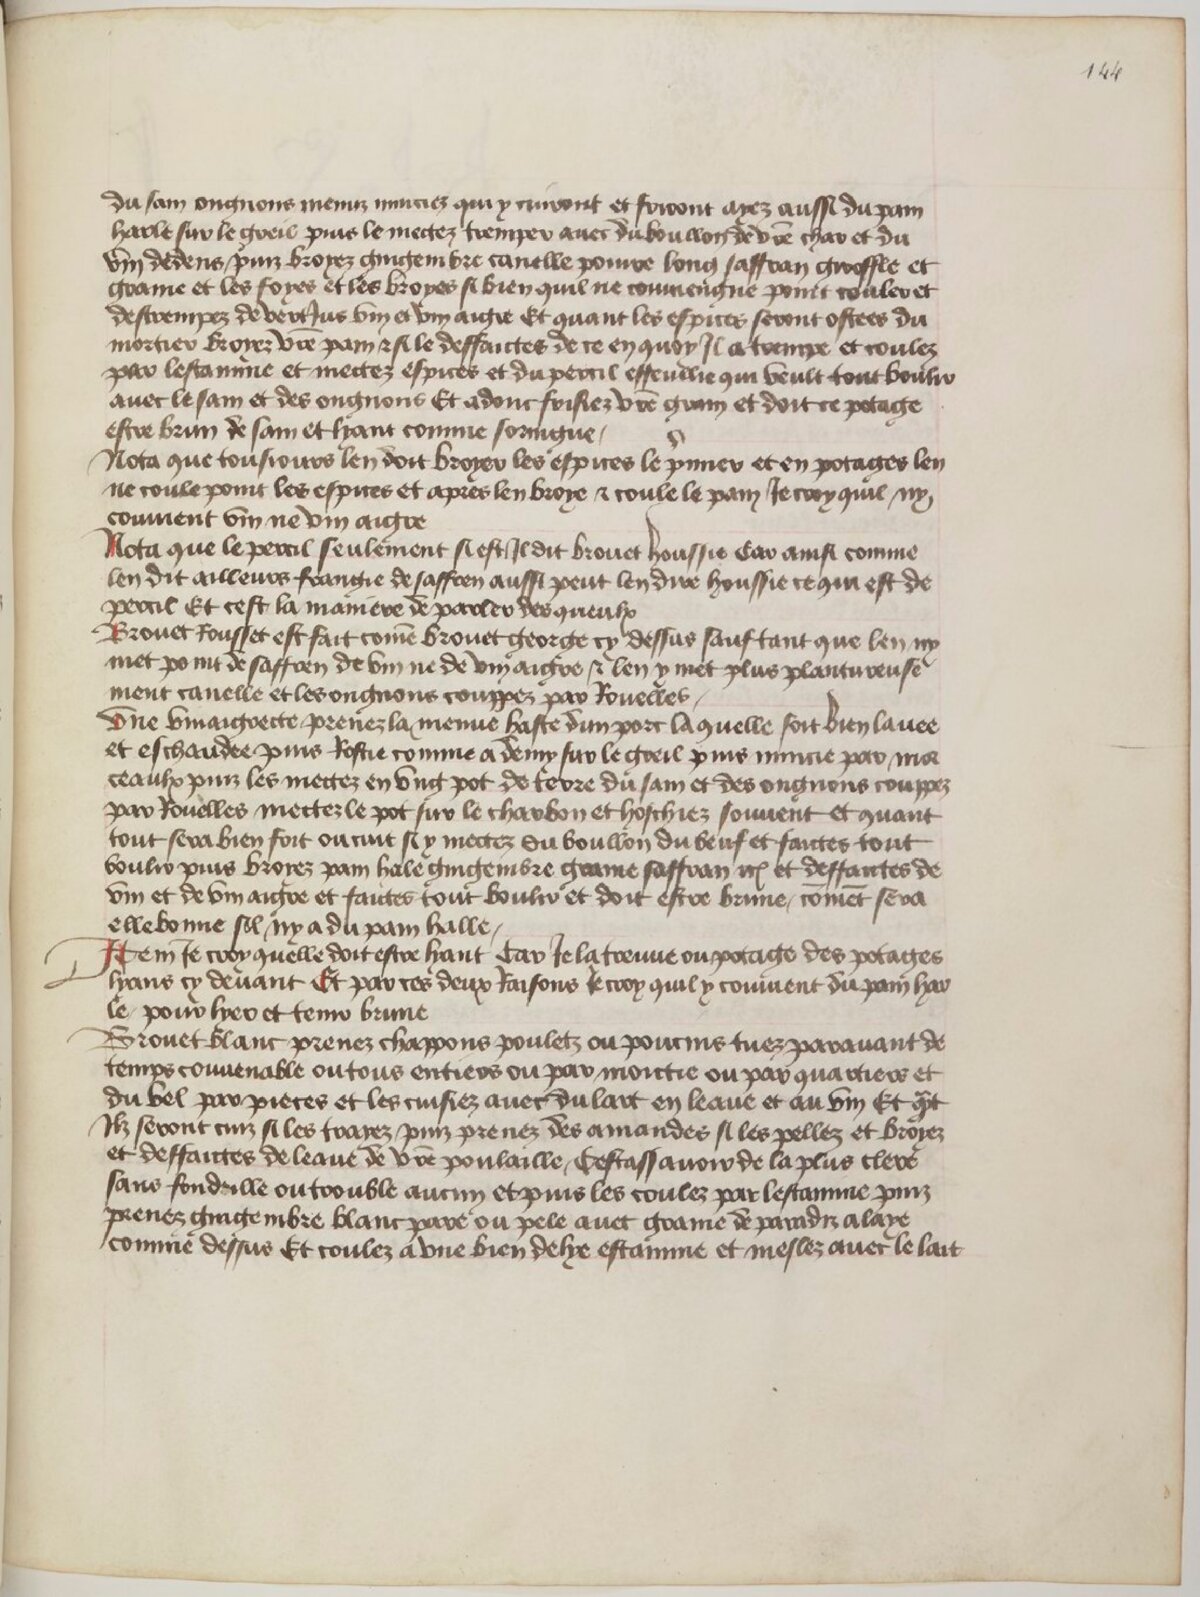 144
du sain ongnons menuz minciez qui y cuiront et friront ayez aussi du pain
harle sur le greil puis le mectez tremper avec du boullon de vre char et du
vin dedens / puiz broyez gingembre canelle poivre long saffran giroffle et
graine et les foyes et les broyes si bien quil ne conviengne point couler et
destrempez de vertjus vin et vin aigre Et quant les espices seront ostees du
mortier broyez vre pain et si le deffaictes de ce en quoy Il a trempe et coulez
par lestamine et mectez espices et du percil effeullie qui veult tout boulir
avec le sain et des ongnons Et adonc frisiez vre grain et doit ce potage
estre brun de sain et lyant comme soringue /
Nota que tousiours len doit broyer les espices le pmier et en potages len
ne coule point les espices et apres len broye et coule le pain Je croy quil ny
convient vin ne vin aigre
Nota que le percil seulement si est Il dit brouet houssie Car ainsi comme
len dit ailleurs frangie de saffren aussi peut len dire houssie ce qui est de
percil Et cest la maniere de parler des queulx
Brouet Rousset est fait come brouet george cy dessus sauf tant que len ny
met point de saffren de vin ne de vin aigre et len y met plus plantureuse
ment canelle et les ongnons couppez par Rouelles /
Une vinaigrecte prenez la menue haste dun porc la quelle soit bien lavee
et eschaudee puis Rostie comme a demy sur le greil puis mincie par mor
ceaulx puiz les mectez en ung pot de terre du sain et des ongnons couppez
par Rouelles mectez le pot sur le charbon et hoschiez souvent et quant
tout sera bien frit ou cuit si y mectez du boullon du beuf et faictes tout
boulir puis broyez pain hale gingembre graine saffran etc et deffaictes de
vin et de vin aigre et faictes tout boulir et doit estre brune / coment sera
elle bonne sil ny a du pain halle /
Item Je croy quelle doit estre liant Car Je la treuve ou potage des potages
lyans cy devant Et par ces deux Raisons Je croy quil y convient du pain har
le pour lyer et tenir brune
Brouet blanc prenez chappons pouletz ou poucins tuez paravant de
temps convenable ou tous entiers ou par moictie ou par quartiers et
du vel par pieces et les cuisiez avec du lart en leaue et au vin Et qnt
Ilz seront cuiz si les trayez puiz prenez des amandes si les pellez et broyez
et deffaictes de leaue de vre poulaille / Cestassavoir de la plus clere
sans fondrille ou trouble aucun et puis les coulez par lestamine puiz
prenez gingembre blanc pare ou pele avec graine de paradiz alaye
comme dessus Et coulez a une bien delye estamine et meslez avec le lait